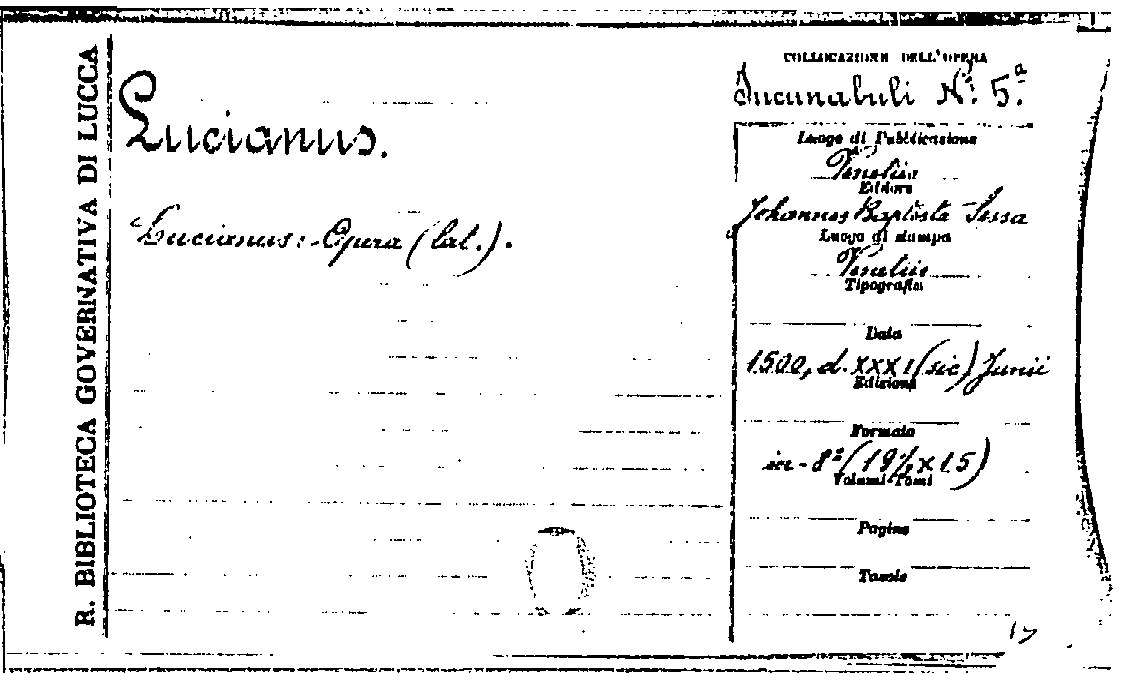 R. BIBLIOTECA GOVERNATIVA DI LUCCA
Lucianus.
Lucianus: Opera (lat.).
COLLOCAZIONE DELL'OPERA
Incunabuli N.º 5.ª
Luogo di Pubblicazione
Venetiis
Editore
Johannes Baptista Sessa
Luogo di stampa
Venetiis
Tipografia
Data
1500, d. XXXI (sic) Junii
Edizione
Formato
in-8º (19½ x 15)
Volumi-Tomi
Pagine
Tavole
17